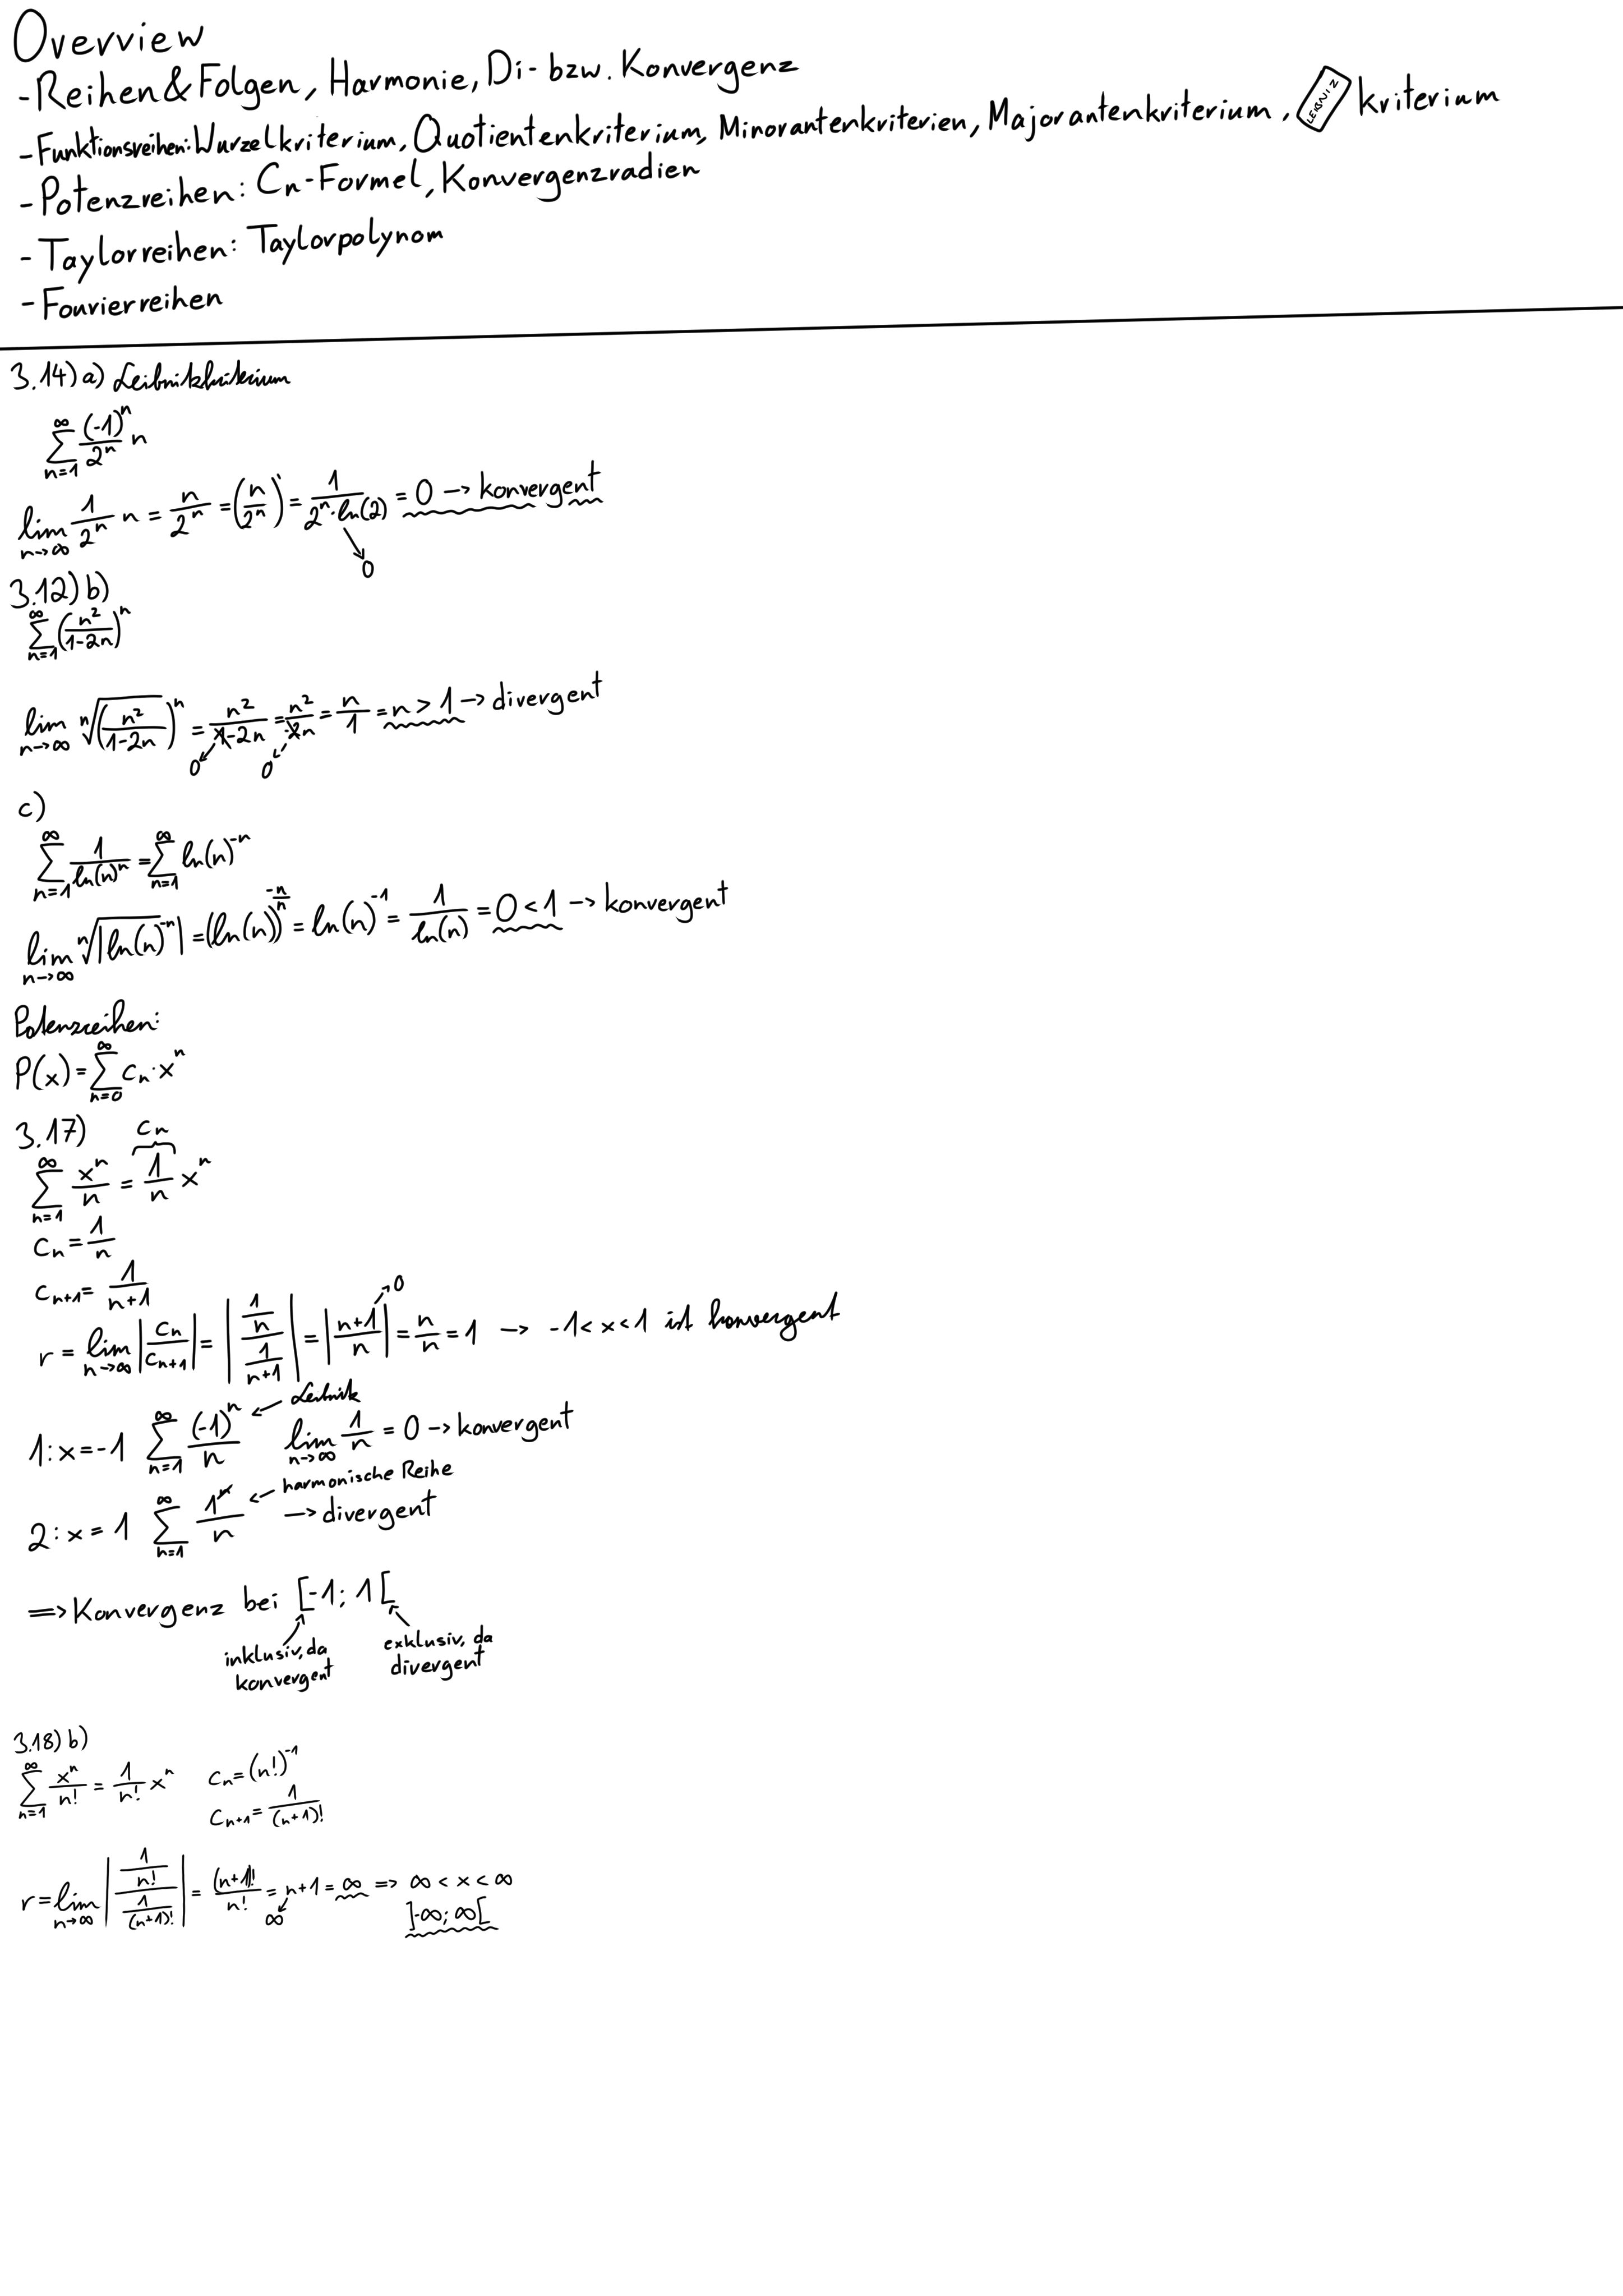 Overview
-Reihen & Folgen, Harmonie, Di- bzw. Konvergenz
-Funktionsreihen: Wurzelkriterium, Quotientenkriterium, Minorantenkriterien, Majorantenkriterium, LEIBNIZ kriterium
-Potenzreihen: Cn-Formel, Konvergenzradien
-Taylorreihen: Taylorpolynom
-Fourierreihen
3.14) a) Leibnitzkriterium
∑_{n=1}^{∞} (-1)^n/2^n n
lim_{n->∞} 1/2^n n = n/2^n = (n/2^n)' = 1/(2^n·ln(2)) = 0 -> konvergent
0
3.12) b)
∑_{n=1}^{∞} (n²/(1-2n))^n
lim_{n->∞} ⁿ√(n²/(1-2n))^n = n²/(1-2n) = n²/(-2n) = n/1 = n > 1 -> divergent
0 0
c)
∑_{n=1}^{∞} 1/ln(n)^n = ∑_{n=1}^{∞} ln(n)^{-n}
lim_{n->∞} ⁿ√|ln(n)^{-n}| = (ln(n))^{-n/n} = ln(n)^{-1} = 1/ln(n) = 0 < 1 -> konvergent
Potenzreihen:
P(x) = ∑_{n=0}^{∞} c_n · x^n
3.17) c_n
∑_{n=1}^{∞} x^n/n = 1/n x^n
c_n = 1/n
c_{n+1} = 1/(n+1)
r = lim_{n->∞} |c_n/c_{n+1}| = |(1/n)/(1/(n+1))| = |(n+1)/n| = n/n = 1 -> -1 < x < 1 ist konvergent
0
1: x = -1 ∑_{n=1}^{∞} (-1)^n/n <- Leibnitz lim_{n->∞} 1/n = 0 -> konvergent
2: x = 1 ∑_{n=1}^{∞} 1^n/n <- harmonische Reihe
-> divergent
=> Konvergenz bei [-1; 1[
inklusiv, da konvergent
exklusiv, da divergent
3.18) b)
∑_{n=1}^{∞} x^n/n! = 1/n! x^n c_n = (n!)^{-1}
c_{n+1} = 1/(n+1)!
r = lim_{n->∞} |(1/n!)/(1/(n+1)!)| = (n+1)!/n! = n+1 = ∞ => ∞ < x < ∞
∞ ]-∞; ∞[